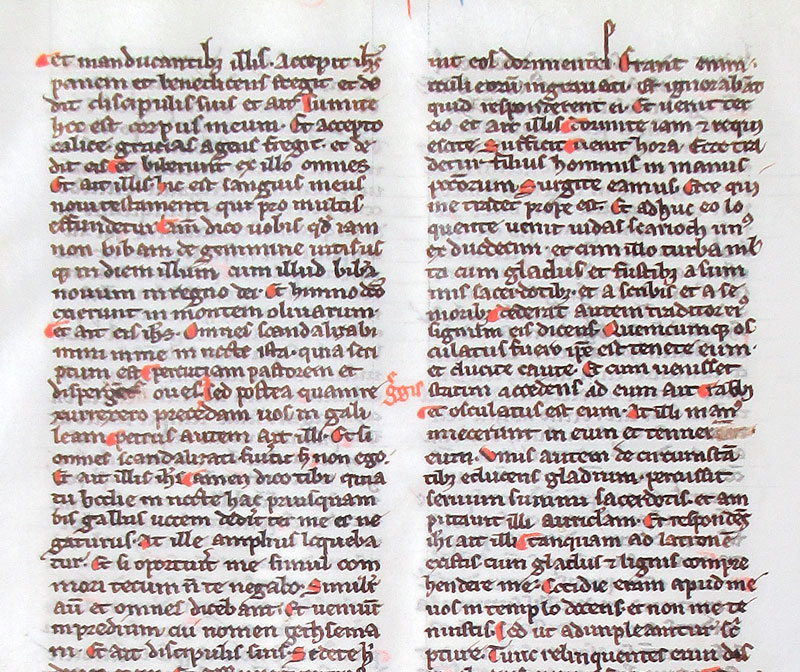 et manducantib; illis. Accepit ih̄s
panem et benedicens fregit et de
dit discipulis suis et ait Sumite
hoc est corpus meum. Et accepto
calice gracias agens fregit et de
dit eis Et biberunt ex illo omnes
Et ait illis hic est sanguis meus
noui testamenti qui pro multis
effundetur Am̄ dico uobis qd̄ iam
non bibam de gemmine uitis us
q; in diem illum cum illud bibā
nouum in regno dei. Et himno dco
exierunt in montem oliuarum.
Et ait eis ih̄s. Omnes scandalizabi
mini in me in nocte ista. quia scri
ptum est percutiam pastorem et
dispergent oues. Sed postea quam re
surrexero precedam uos in gali
leam. Petrus autem ait illi. Et si
omnes scandalizati fu'int s; non ego.
Et ait illis ih̄s Amen dico tibi quia
tu hodie in nocte hac priusquam
bis gallus uocem ded'it ter me es ne
gaturus. At ille amplius loqueba
tur. Et si oportu'it me simul com
mori tecum n̄ te negabo. Simulit'
aū et omnes dicebant. Et ueniūt
in predium cui nomen gethsema
ni. Et ait discipulis suis Sedete h'
nit eos dormientes. Erant enim
oculi eorū ingrauati. Et ignorabāt
quid responderent ei. Et uenit ter
cio et ait illis Dormite iam ⁊ requi
escite Sufficit uenit hora. Ecce tra
detur filius hominis in manus
peccōrum. Surgite eamus. Ecce qui
me tradet prope est. Et adhuc eo lo
quente uenit iudas scarioth un'
ex duodecim. et cum illo turba ml'
ta cum gladiis et fustib; a sum
mis sacerdotib;. et a scribis et a se
niorib; Dederat autem traditor ei'
signum eis dicens. Quemcumq; os
culatus fuero ip̄e est tenete eum.
et ducite caute. Et cum uenisset
statim accedens ad eum ait Rabbi
et osculatus est eum. At illi man'
iniecerunt in eum et tenuer
eum. Unus autem de circumstā
tib; educens gladium. percussit
seruum summi sacerdotis. et am
putauit illi auriclam. Et respondēs
ih̄s ait illi Tanquam ad latronē
existis cum gladiis ⁊ lignis compre
hendere me. Cotidie eram apud me
uos in templo docens. et non me te
nuistis Sed ut adimpleantur sc'
pture. Tunc relinquentes eum dis